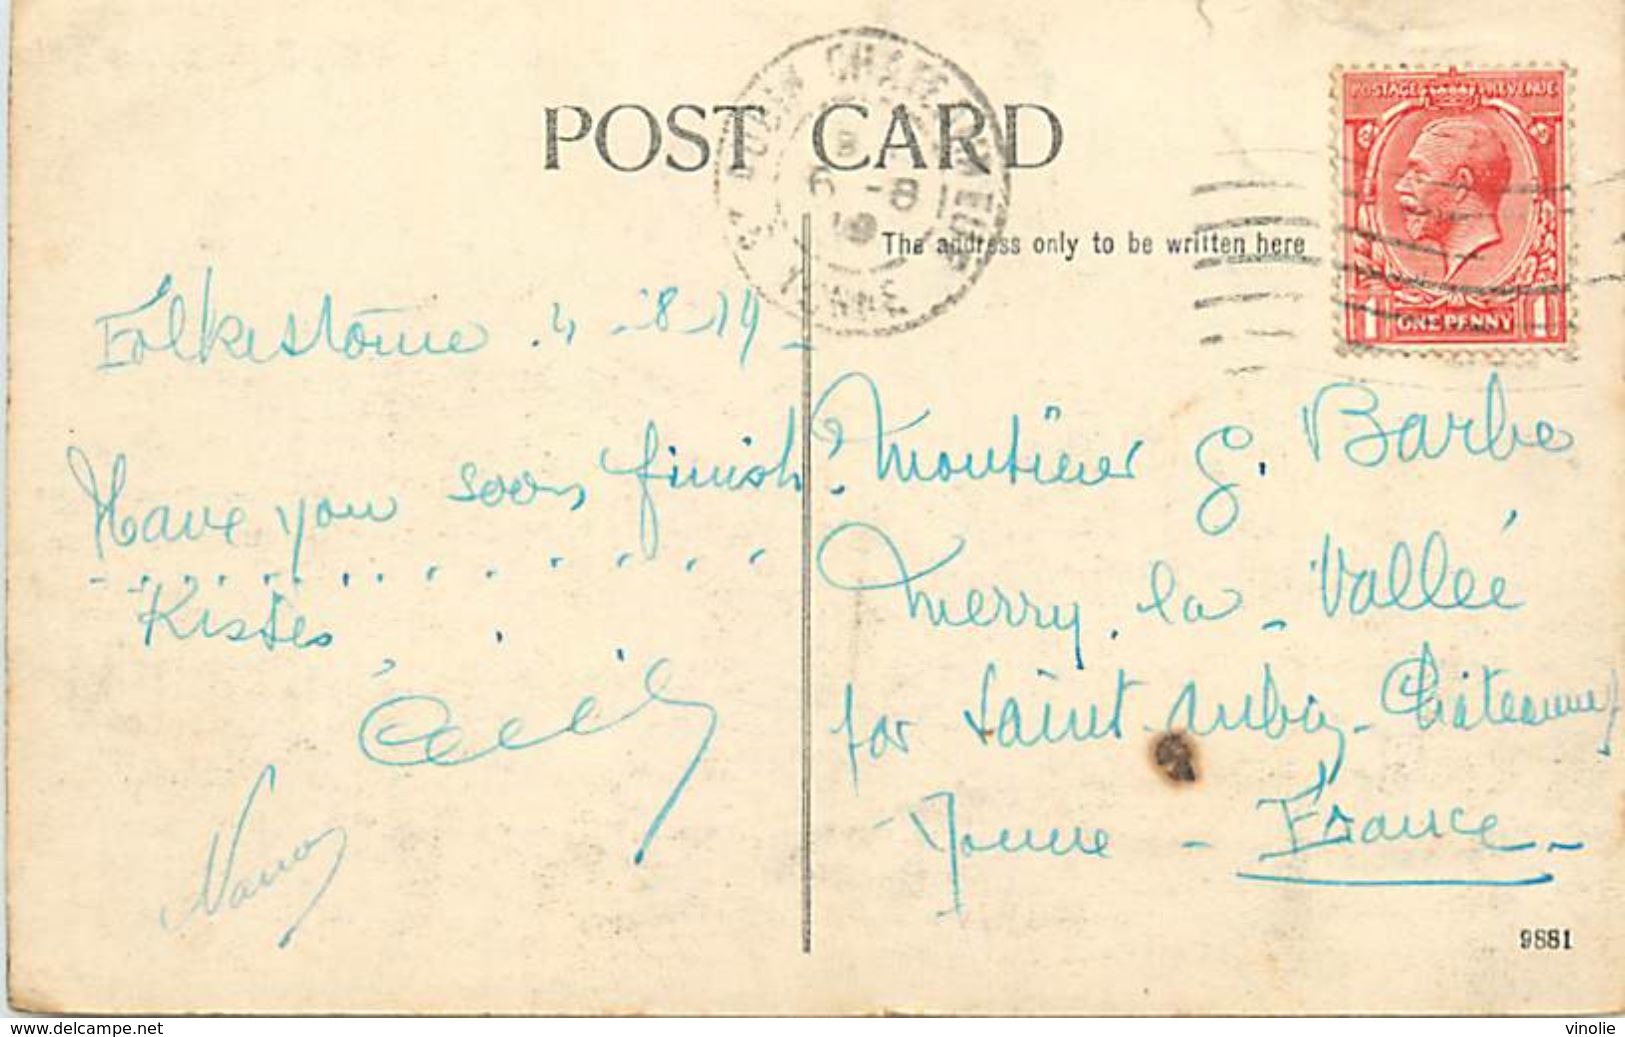 POST CARD
The address only to be written here
POSTAGE REVENUE
1 ONE PENNY 1
YONNE
Folkestone . 4 - 8 - 19 -
Have you soon finish?
Kisses
Cecily
Nancy
Monsieur G. Barbe
Merry . la - Vallée
par Saint - Aubin - Châteauneuf
Yonne - France -
9881
www.delcampe.net
vinolie